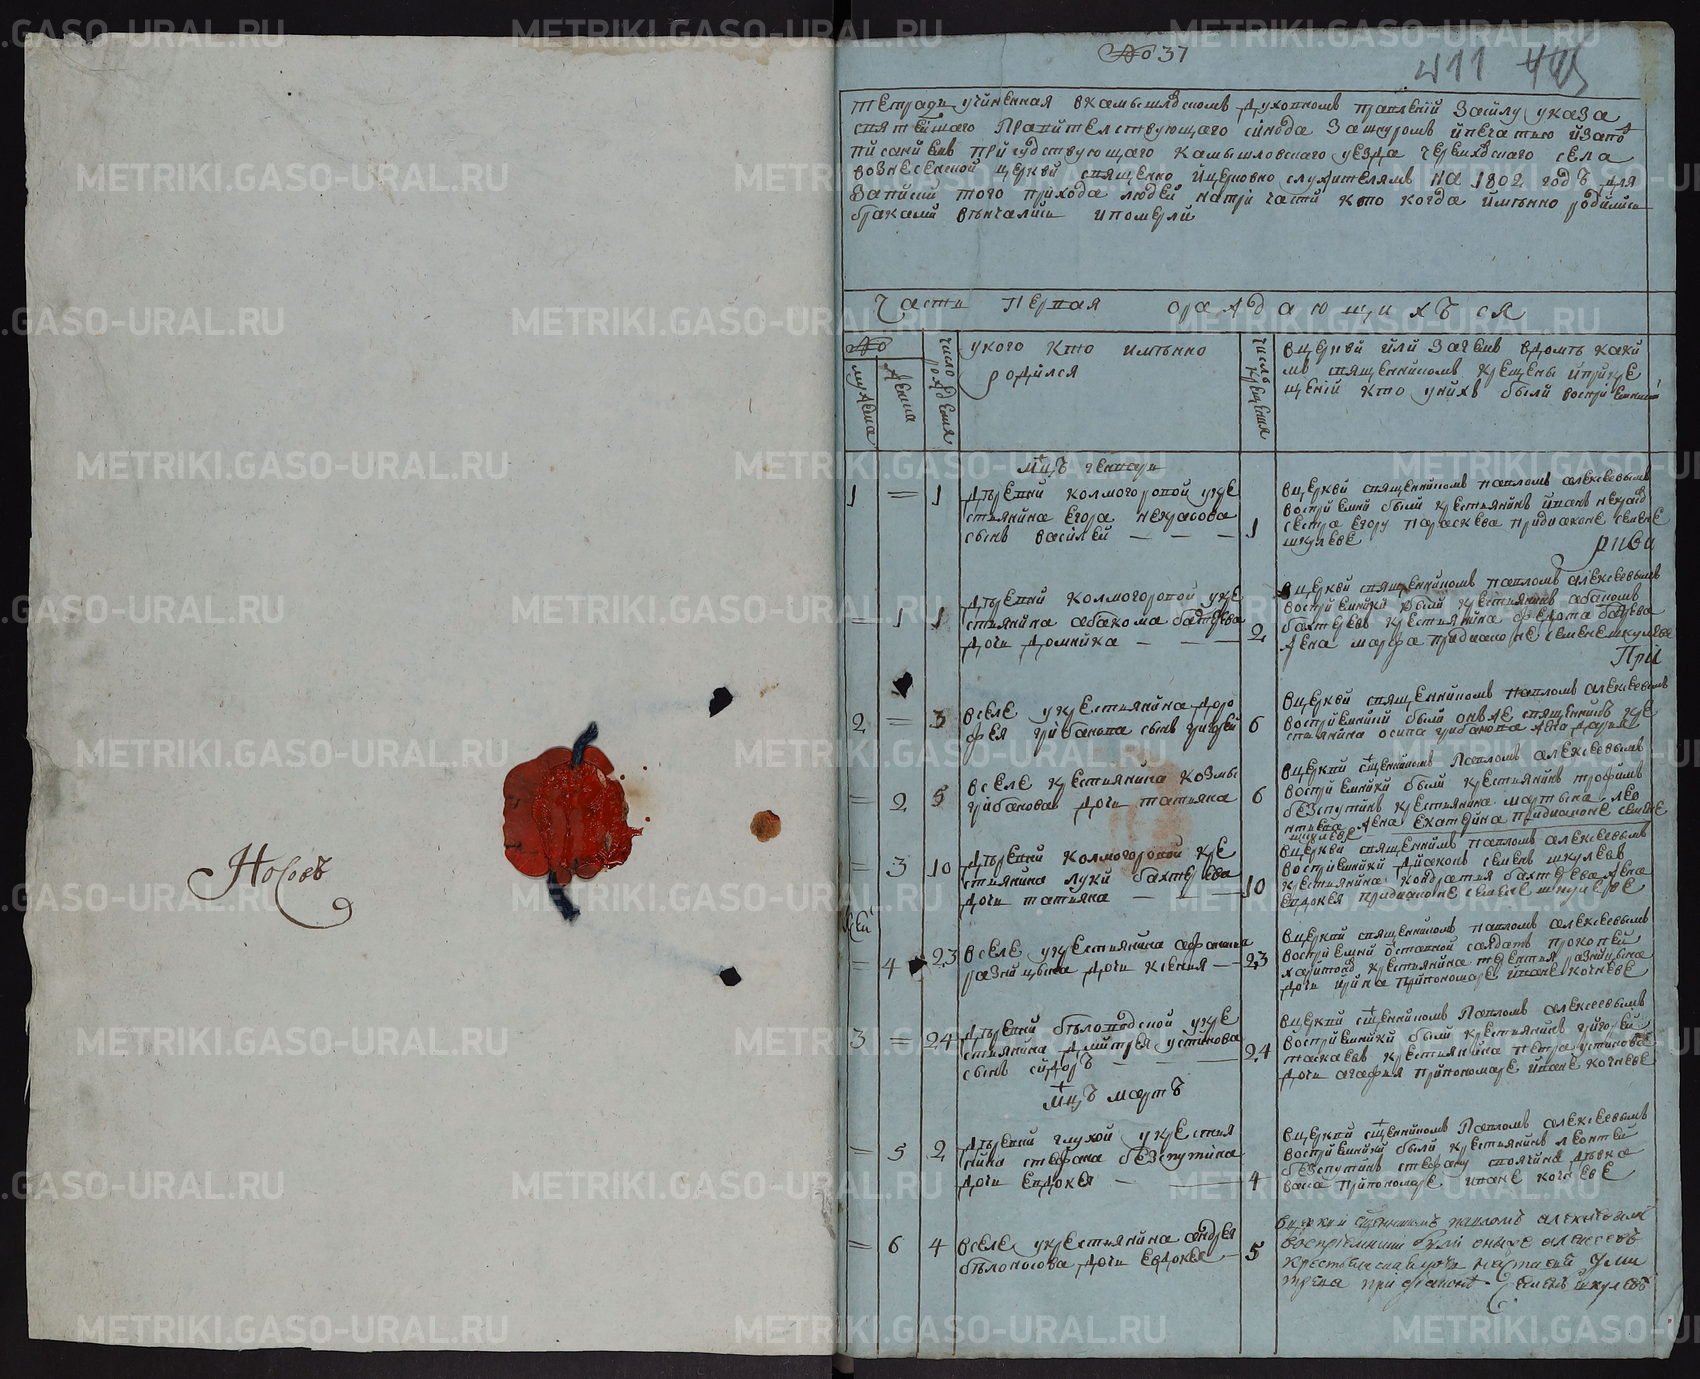 Носовъ
№ 37
411
тетрадь учиненная вкамышловскомъ духовномъ правленiи засилу указа
святейшаго правителствующаго синода зашнуромъ ипечатью изапод
писаниемъ присудствующаго камышловскаго уезда села
вознесенской церкви священно ицерковно служителямъ на 1802 годъ для
записки того прихода людей натри части кто когда имянно родились
браками венчались ипомерли
Часть первая ораждающихъся
№
мужеска
женска
число рождения
укого кто имянно
родился
число крещения
вцеркви или зачемъ вдомъ каки
мъ священникомъ крещены иприкре
щенiи кто унихъ были восприемники
мцъ генварь
1 = 1 деревни колмогоровой укре
стьянина егора некрасова
сынъ василей — — — 1
вцеркви священникомъ павломъ алексеевымъ
восприемники были крестьянинъ иванъ
сестра егору параскева придиаконе семене
шкулеве
= 1 1 деревни колмогоровой укре
стьянина абакома бахтерева
дочь домника — — — 2
вцеркви священникомъ павломъ алексеевымъ
восприемники были крестьянинъ
бахтеревъ крестьянина федота бахтерева
жена марфа придиаконе семене шкулеве
При
2 = 3 вселе укрестьянина доро
фея грибанова сынъ григорей 6
вцеркви священникомъ павломъ алексеевымъ
восприемники были онъ же священникъ кре
стьянина осипа грибанова жена дарья
= 2 5 вселе крестьянина козмы
грибанова дочь татьяна 6
вцеркви сщенникомъ павломъ алексеевымъ
восприемники были крестьянинъ трофимъ
безпутинъ крестьянина мартына лео
нтьева жена екатерина придиаконе семене
шкулеве
= 3 10 деревни колмогоровой кре
стьянина луки бахтерева
дочь татьяна — — — 10
вцеркви священникомъ павломъ алексеевымъ
восприемники диаконъ семенъ шкулевъ
крестьянина кондратья бахтерева жена
евдокея придиаконе семене шкулеве
= 4 23 вселе укрестьянина афанасья
разницына дочь ксения — 23
вцеркви священникомъ павломъ алексеевымъ
восприемники отставной салдатъ прокопей
крестьянина терентья разницына
дочь ирина припономаре иване кочневе
3 = 24 деревни белоносовой укре
стьянина дмитрея устинова
сынъ сидоръ — — 24
вцеркви сщенникомъ павломъ алексеевымъ
восприемники были крестьянинъ григорей
крестьянина петра устинова
дочь агафия припономаре иване кочневе
мцъ мартъ
= 5 2 деревни глухой укрестья
нина стефана безпутина
дочь евдокея — — 4
вцеркви сщенникомъ павломъ алексеевымъ
восприемники были крестьянинъ леонтей
безпутинъ стефану девка
припономаре иване кочневе
= 6 4 вселе укрестьянина андрея
белоносова дочь евдокея — 5
вцеркви сщенникомъ павломъ алексеевымъ
восприемники были
при диаконе Семене шкулеве
METRIKI.GASO-URAL.RU